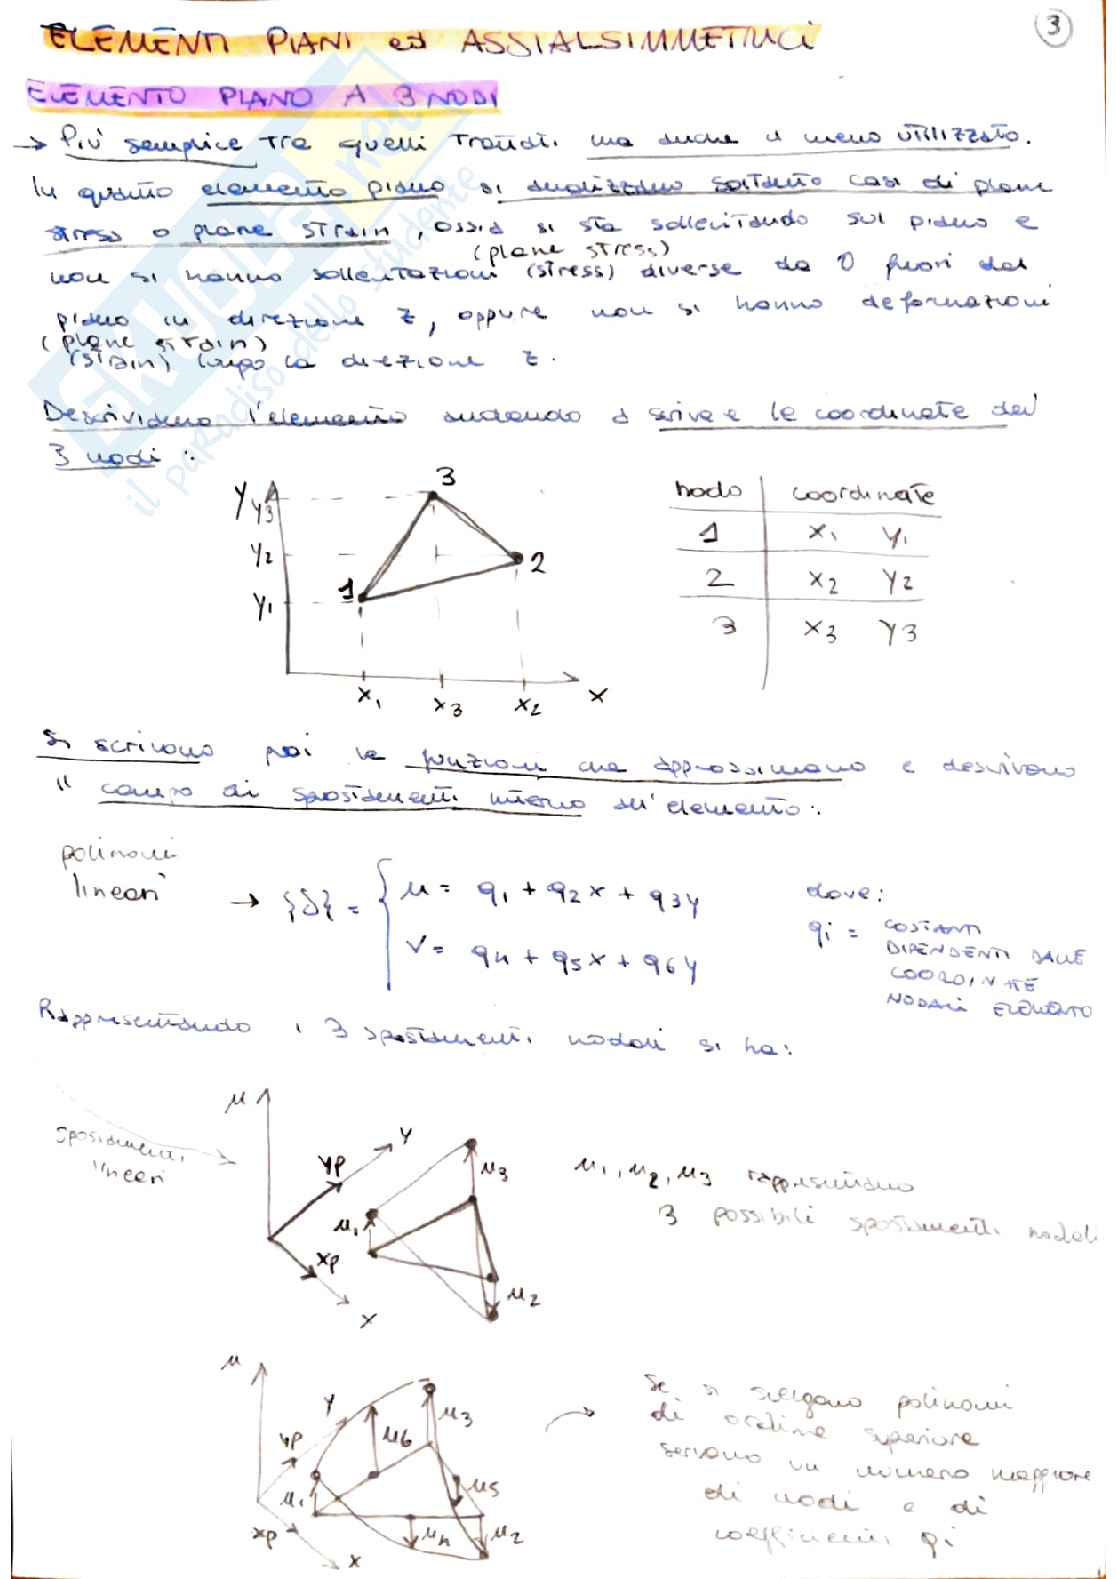 ELEMENTI PIANI ed ASSIALSIMMETRICI
3
ELEMENTO PLANO A 3 NODI
→ Più semplice tra quelli trattati, ma anche il meno utilizzato.
In questo elemento piano si analizzano soltanto casi di plane
stress o plane strain, ossia si sta sollecitando sul piano e
(plane stress)
non si hanno sollecitazioni (stress) diverse da 0 fuori dal
piano in direzione z, oppure non si hanno deformazioni
(plane strain)
(strain) lungo la direzione z.
Descriviamo l'elemento andando a scrivere le coordinate dei
3 nodi:
Y
Y3
Y2
Y1
1
2
3
X1
X3
X2
X
nodo coordinate
1 X1 Y1
2 X2 Y2
3 X3 Y3
Si scrivono poi le funzioni che approssimano e descrivono
il campo di spostamenti interno all'elemento:
polinomi
lineari
→ {δ} = { u = q1 + q2x + q3y
v = q4 + q5x + q6y
dove:
qi = COSTANTI
DIPENDENTI DALLE
COORDINATE
NODALI ELEMENTO
Rappresentando i 3 spostamenti nodali si ha:
spostamenti
lineari
u
y
yp
xp
x
u1
u3
u2
u1, u2, u3 rappresentano
3 possibili spostamenti nodali
u
y
yp
xp
x
u1
u6
u3
u5
u4
u2
Se si scelgono polinomi
di ordine superiore
servono un numero maggiore
di nodi e di
coefficienti qi
SKUOLA.net
il paradiso dello studente